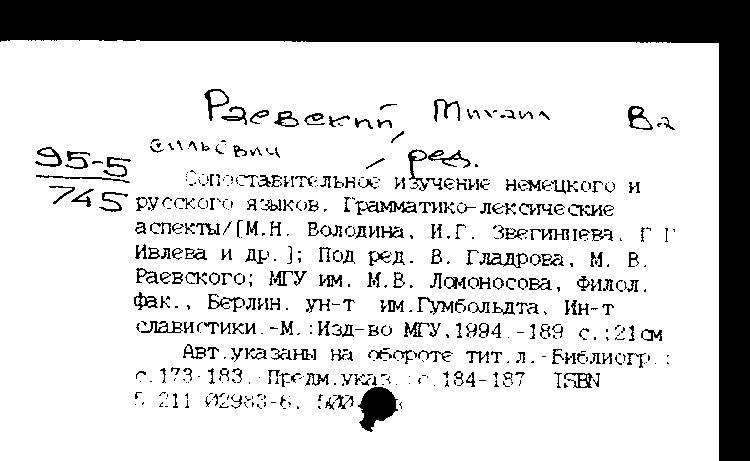 Раевский, Михаил Ва
сильевич, ред.
95-5
745
Сопоставительное изучение немецкого и
русского языков. Грамматико-лексические
аспекты/[М.Н. Володина, И.Г. Звегинцева, Г Г
Ивлева и др.]; Под ред. В. Гладрова, М. В.
Раевского; МГУ им. М.В. Ломоносова, Филол.
фак., Берлин. ун-т им.Гумбольдта, Ин-т
славистики.-М.:Изд-во МГУ,1994.-189 с.;21см
Авт.указаны на обороте тит.л.-Библиогр.:
с.173-183.-Предм.указ.:с.184-187 ISBN
5 211 02983-6, 500